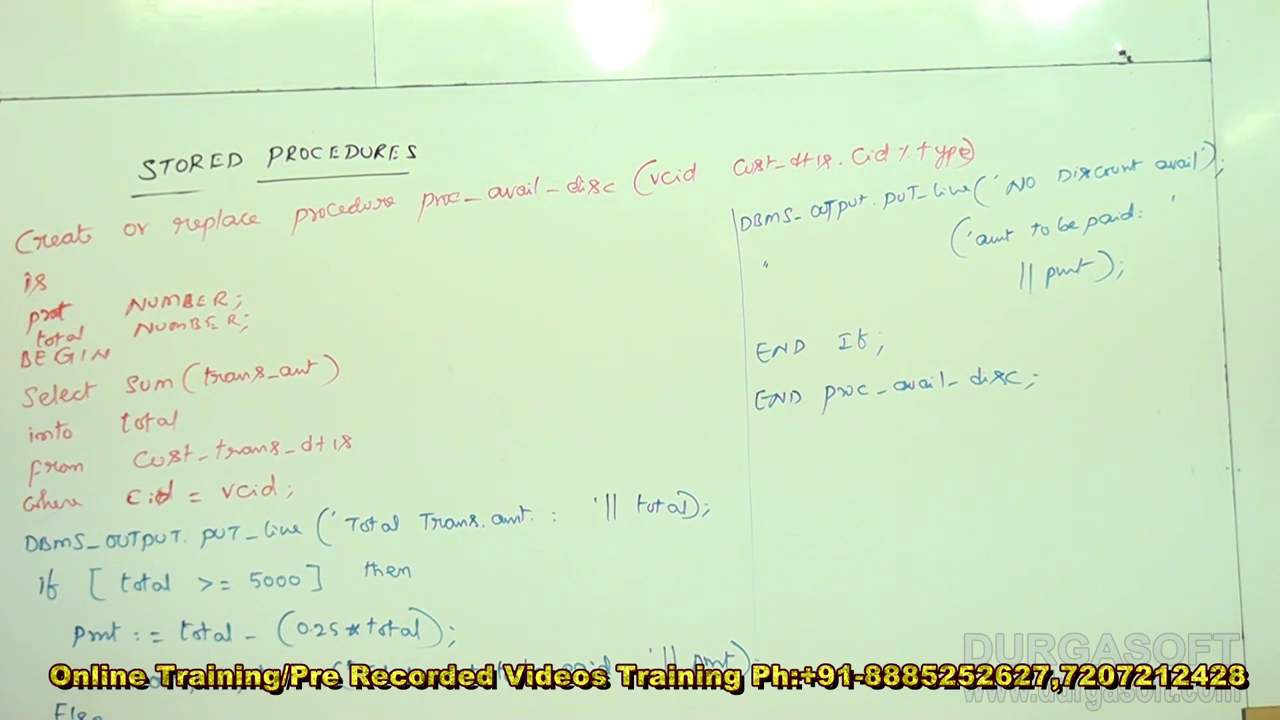 STORED PROCEDURES
Create or replace procedure proc_avail_disc (vcid cust_dtls.cid%type)
is
pmt NUMBER;
total NUMBER;
BEGIN
Select sum(trans_amt)
into total
from cust_trans_dtls
where cid = vcid;
DBMS_OUTPUT.PUT_line('Total Trans.amt. : '|| total);
if [total >= 5000] then
pmt := total - (0.25*total);
'|| pmt);
Else
DBMS_OUTPUT.PUT_line('NO Discount avail');
" ('amt to be paid: '
|| pmt);
END If;
END proc_avail_disc;
DURGASOFT
www.durgasoft.com
Online Training/Pre Recorded Videos Training Ph:+91-8885252627,7207212428